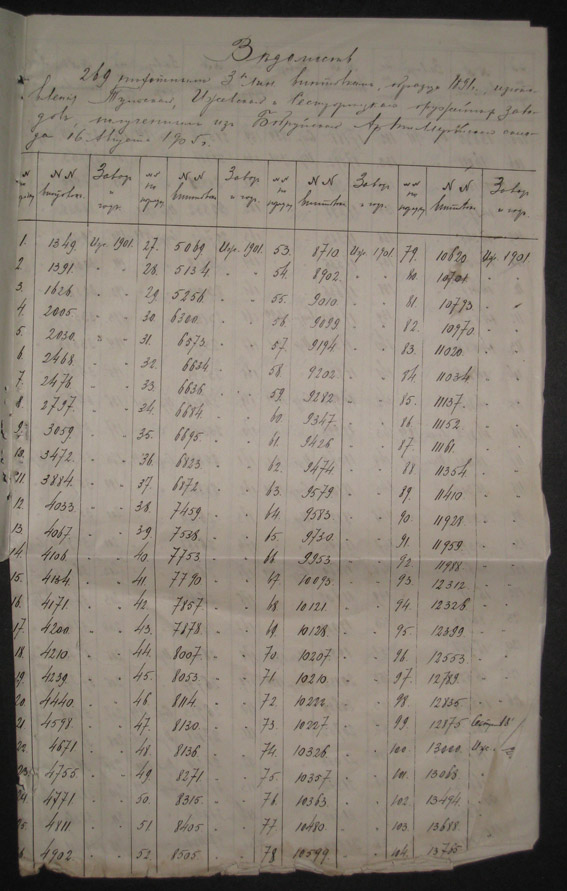 Ведомость
269 пехотнымъ 3 лин винтовкамъ, образца 1891 г.
Тульскаго, Ижевскаго и Сестрорецкаго оружейныхъ заво-
довъ, полученнымъ изъ Бобруйскаго Артиллерійскаго
16 Августа 1905 г.
№№ по порядку №№ винтовк. Заводъ и годъ. №№ по порядку №№ винтовк. Заводъ и годъ. №№ по порядку №№ винтовк. Заводъ и годъ. №№ по порядку №№ винтовк. Заводъ и годъ.
1. 1349. Иж. 1901. 27. 5069 Иж. 1901. 53. 8710 Иж. 1901 79. 10620 Иж. 1901
2. 1391. 28. 5134 54. 8902. 80. 10701
3. 1626. 29. 5256 55. 9010 81. 10793
4. 2005 30. 6300. 56. 9099 82. 10970
5. 2030. 31. 6573. 57. 9194 83. 11020
6. 2468. 32. 6634 58. 9202 84. 11034
7. 2476 33. 6636. 59. 9282 85. 11137.
8. 2797. 34. 6684 60. 9347 86. 11152
9. 3059 35. 6695 61. 9426 87. 11161.
10. 3472. 36. 6823 62. 9474 88. 11354
11. 3884. 37. 6872 63. 9579 89. 11410
12. 4033 38. 7459 64. 9583 90. 11928
13. 4067. 39. 7538 65. 9730 91. 11959
14. 4106 40. 7753 66. 9953 92. 11988
15. 4134 41. 7790 67. 10093 93. 12312
16. 4171 42. 7857 68. 10121 94. 12326
17. 4200 43. 7878 69. 10128 95. 12399
18. 4210 44. 8007 70. 10207 96. 12553
19. 4239 45. 8053 71. 10210 97. 12789
20. 4440 46. 8114 72. 10222 98. 12835
21. 4598 47. 8130 73. 10227 99. 12875
22. 4671 48. 8136 74. 10326 100. 13000. Иж.
23. 4755 49. 8271 75. 10357 101. 13068
24. 4771 50. 8315. 76. 10363 102. 13494
25. 4811 51. 8405 77. 10480 103. 13688
26. 4902 52. 8505 78. 10599 104. 13785